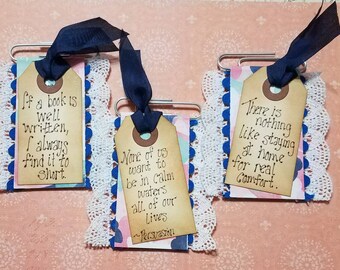 If a book is
well
written,
I always
find it to
short
None of us
want to
be in calm
waters
all of our
lives
~Persuasion
There is
nothing
like staying
at home
for real
comfort.